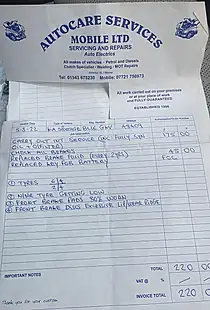 AUTOCARE SERVICES
MOBILE LTD
SERVICING AND REPAIRS
Auto Electrics
All makes of vehicles - Petrol and Diesel
Clutch Specialist - Welding - MOT Repairs
Tel: 01343 675230 Mobile: 07721 756973
All work carried out on your premises
or at your place of work
and FULLY GUARANTEED
ESTABLISHED 1986
CARRY OUT
SERVICE
FULLY SYN
175.00
OIL + FILTER
CHECK ALL BRAKES
REPLACED BRAKE FLUID (EVERY 2 YRS)
45.00
REPLACED KEY FOB BATTERY
FOC
① TYRES
② NINE TYRE GETTING LOW
③ FRONT BRAKE PADS 50% WORN
④ FRONT BRAKE DISC
LIP/WEAR RIDGE
IMPORTANT NOTES
TOTAL 220 00
VAT @ %
INVOICE TOTAL 220
Thank you for your custom